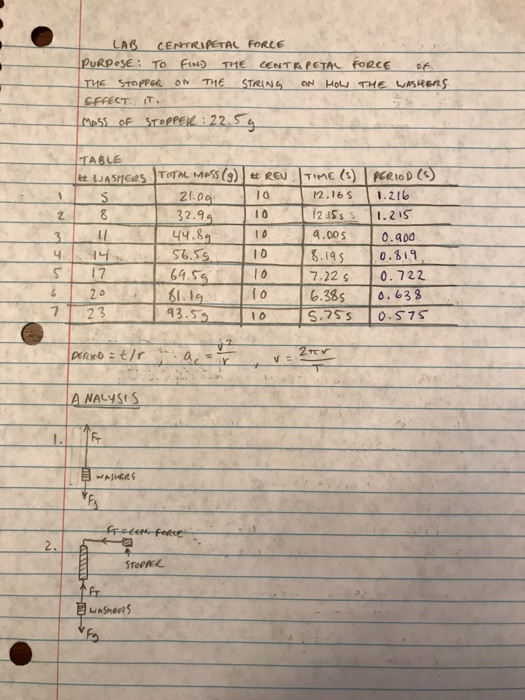 LAB CENTRIPETAL FORCE
PURPOSE: TO FIND THE CENTRAPETAL FORCE OF
THE STOPPER ON THE STRING ON HOW THE WASHERS
EFFECT IT.
MASS OF STOPPER: 22.5g
TABLE
# WASHERS TOTAL MASS (g) # REV TIME (s) PERIOD (s)
1 5 21.0g 10 12.16s 1.216
2 8 32.9g 10 12.15s s 1.215
3 11 44.8g 10 9.00s 0.900
4 14 56.5g 10 8.19s 0.819
5 17 69.5g 10 7.22s 0.722
6 20 81.1g 10 6.38s 0.638
7 23 93.5g 10 5.75s 0.575
PERIOD = t/r , ac = v²/r , v = 2πr/T
ANALYSIS
1. FT
WASHERS
Fg
FT = CEN. FORCE
2.
STOPPER
FT
WASHERS
Fg